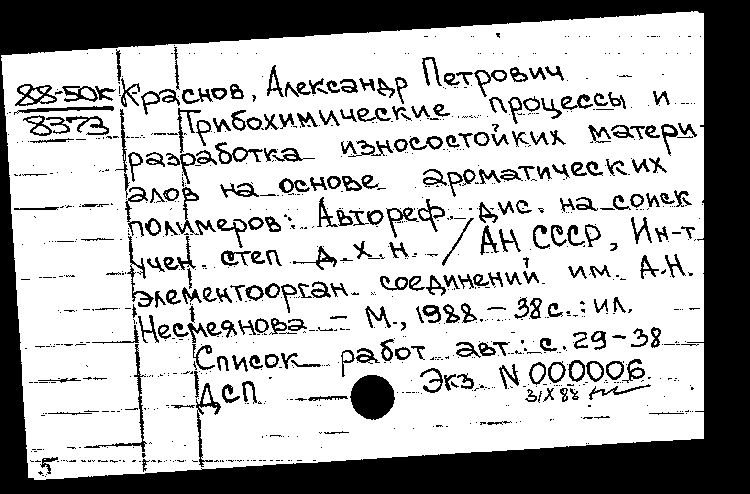 88-50к
8373
Краснов, Александр Петрович
Трибохимические процессы и
разработка износостойких матери-
алов на основе ароматических
полимеров: Автореф. дис. на соиск.
учен. степ д. х. н. / АН СССР, Ин-т
элементоорган. соединений им. А.Н.
Несмеянова – М., 1988. – 38 с. : ил.
Список работ авт.: с. 29-38
ДСП — Экз. N 000006
3/X 88
5